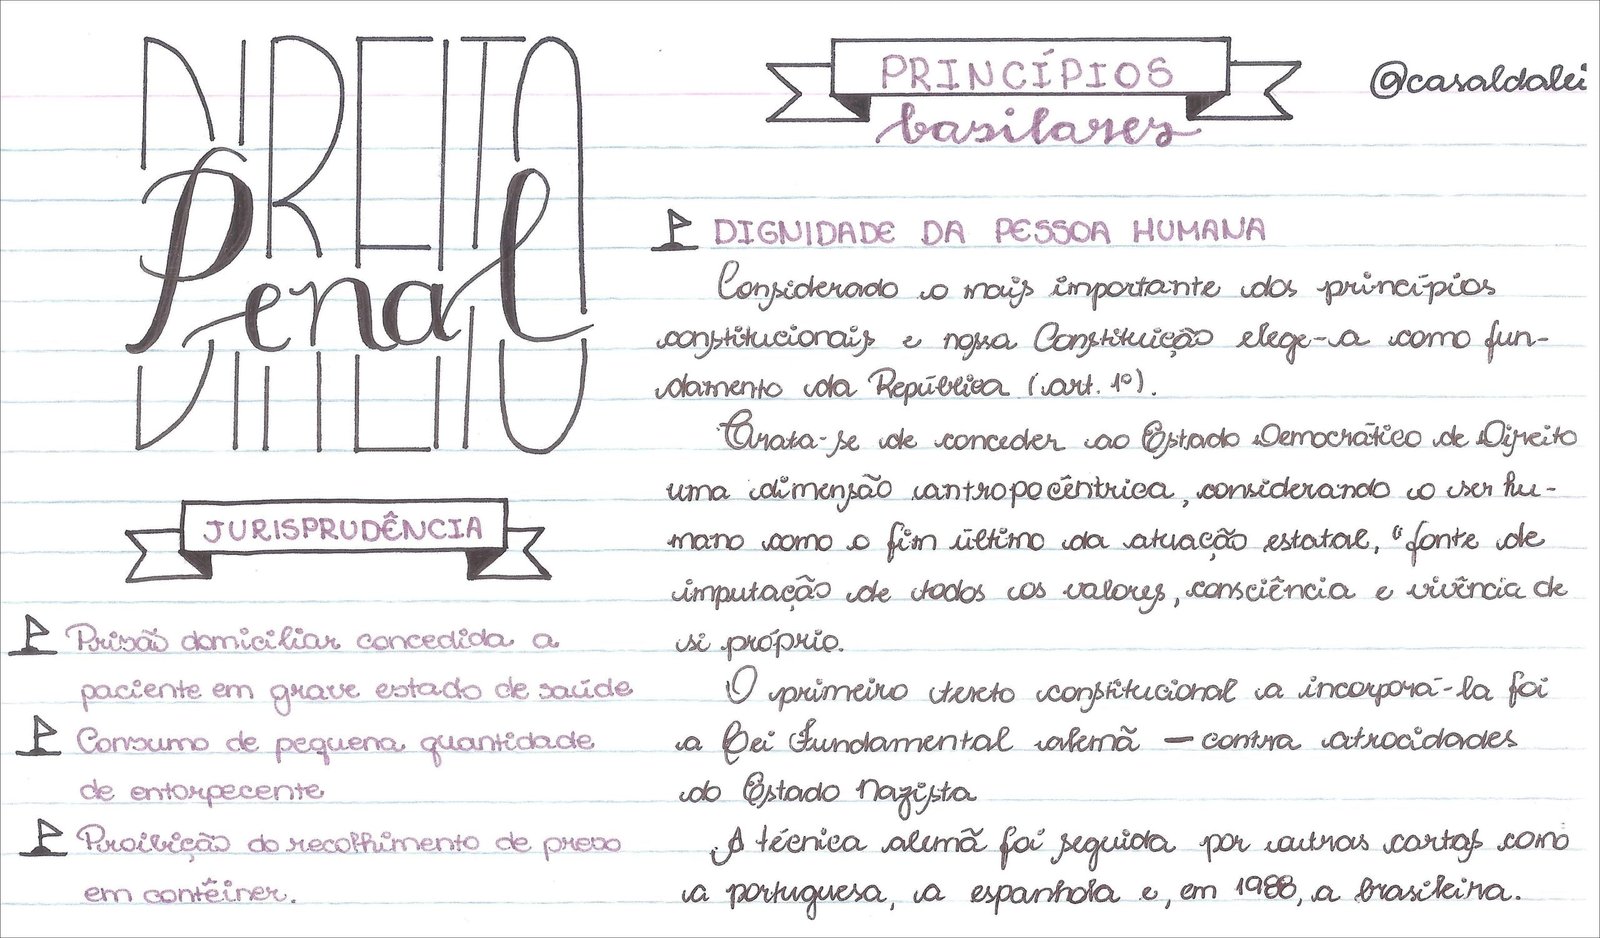 DIREITO
Penal
JURISPRUDÊNCIA
Prisão domiciliar concedida a
paciente em grave estado de saúde
Consumo de pequena quantidade
de entorpecente
Proibição do recolhimento de preso
em contêiner.
PRINCÍPIOS
basilares
@casaldalei
DIGNIDADE DA PESSOA HUMANA
Considerado o mais importante dos princípios
constitucionais e nossa Constituição elege-a como fun-
damento da República (art. 1º).
Trata-se de conceder ao Estado Democrático de Direito
uma dimensão antropocêntrica, considerando o ser hu-
mano como o fim último da atuação estatal, "fonte de
imputação de todos os valores, consciência e vivência de
si próprio.
O primeiro texto constitucional a incorporá-la foi
a Lei Fundamental alemã — contra atrocidades
do Estado Nazista
A técnica alemã foi seguida por outras cartas como
a portuguesa, a espanhola e, em 1988, a brasileira.